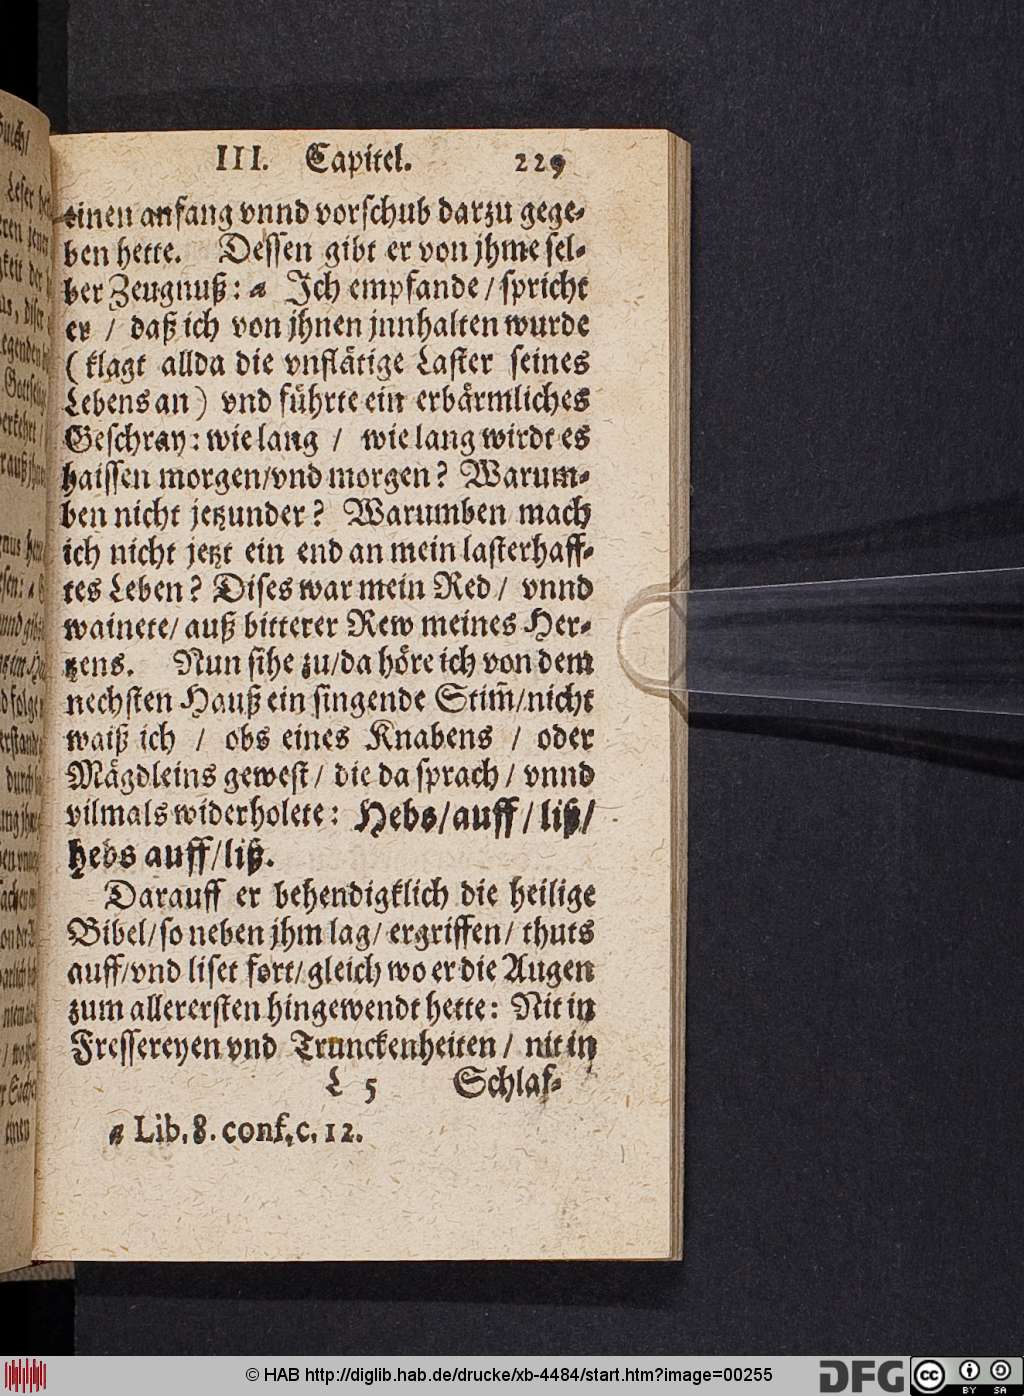 III. Capitel. 229
einen anfang vnnd vorschub darzu gege-
ben hette. Dessen gibt er von jhme sel-
ber Zeugnuß: a Ich empfande / spricht
er / daß ich von jhnen jnnhalten wurde
( klagt allda die vnflätige Laster seines
Lebens an ) vnd führte ein erbärmliches
Geschray: wie lang / wie lang wirdt es
haissen morgen/vnd morgen? Warum-
ben nicht jetzunder? Warumben mach
ich nicht jetzt ein end an mein lasterhaff-
tes Leben? Dises war mein Red / vnnd
wainete/ auß bitterer Rew meines Her-
tzens. Nun sihe zu/da höre ich von dem
nechsten Hauß ein singende Stim̃/nicht
waiß ich / obs eines Knabens / oder
Mägdleins gewest / die da sprach / vnnd
vilmals widerholete: Hebs/auff / liß/
hebs auff/liß.
Darauff er behendigklich die heilige
Bibel/so neben jhm lag/ ergriffen/ thuts
auff/vnd liset fort/gleich wo er die Augen
zum allerersten hingewendt hette: Nit in
Fressereyen vnd Trunckenheiten / nit in
L 5 Schlaf-
a Lib. 8. conf. c. 12.
© HAB http://diglib.hab.de/drucke/xb-4484/start.htm?image=00255
DFG
cc BY SA